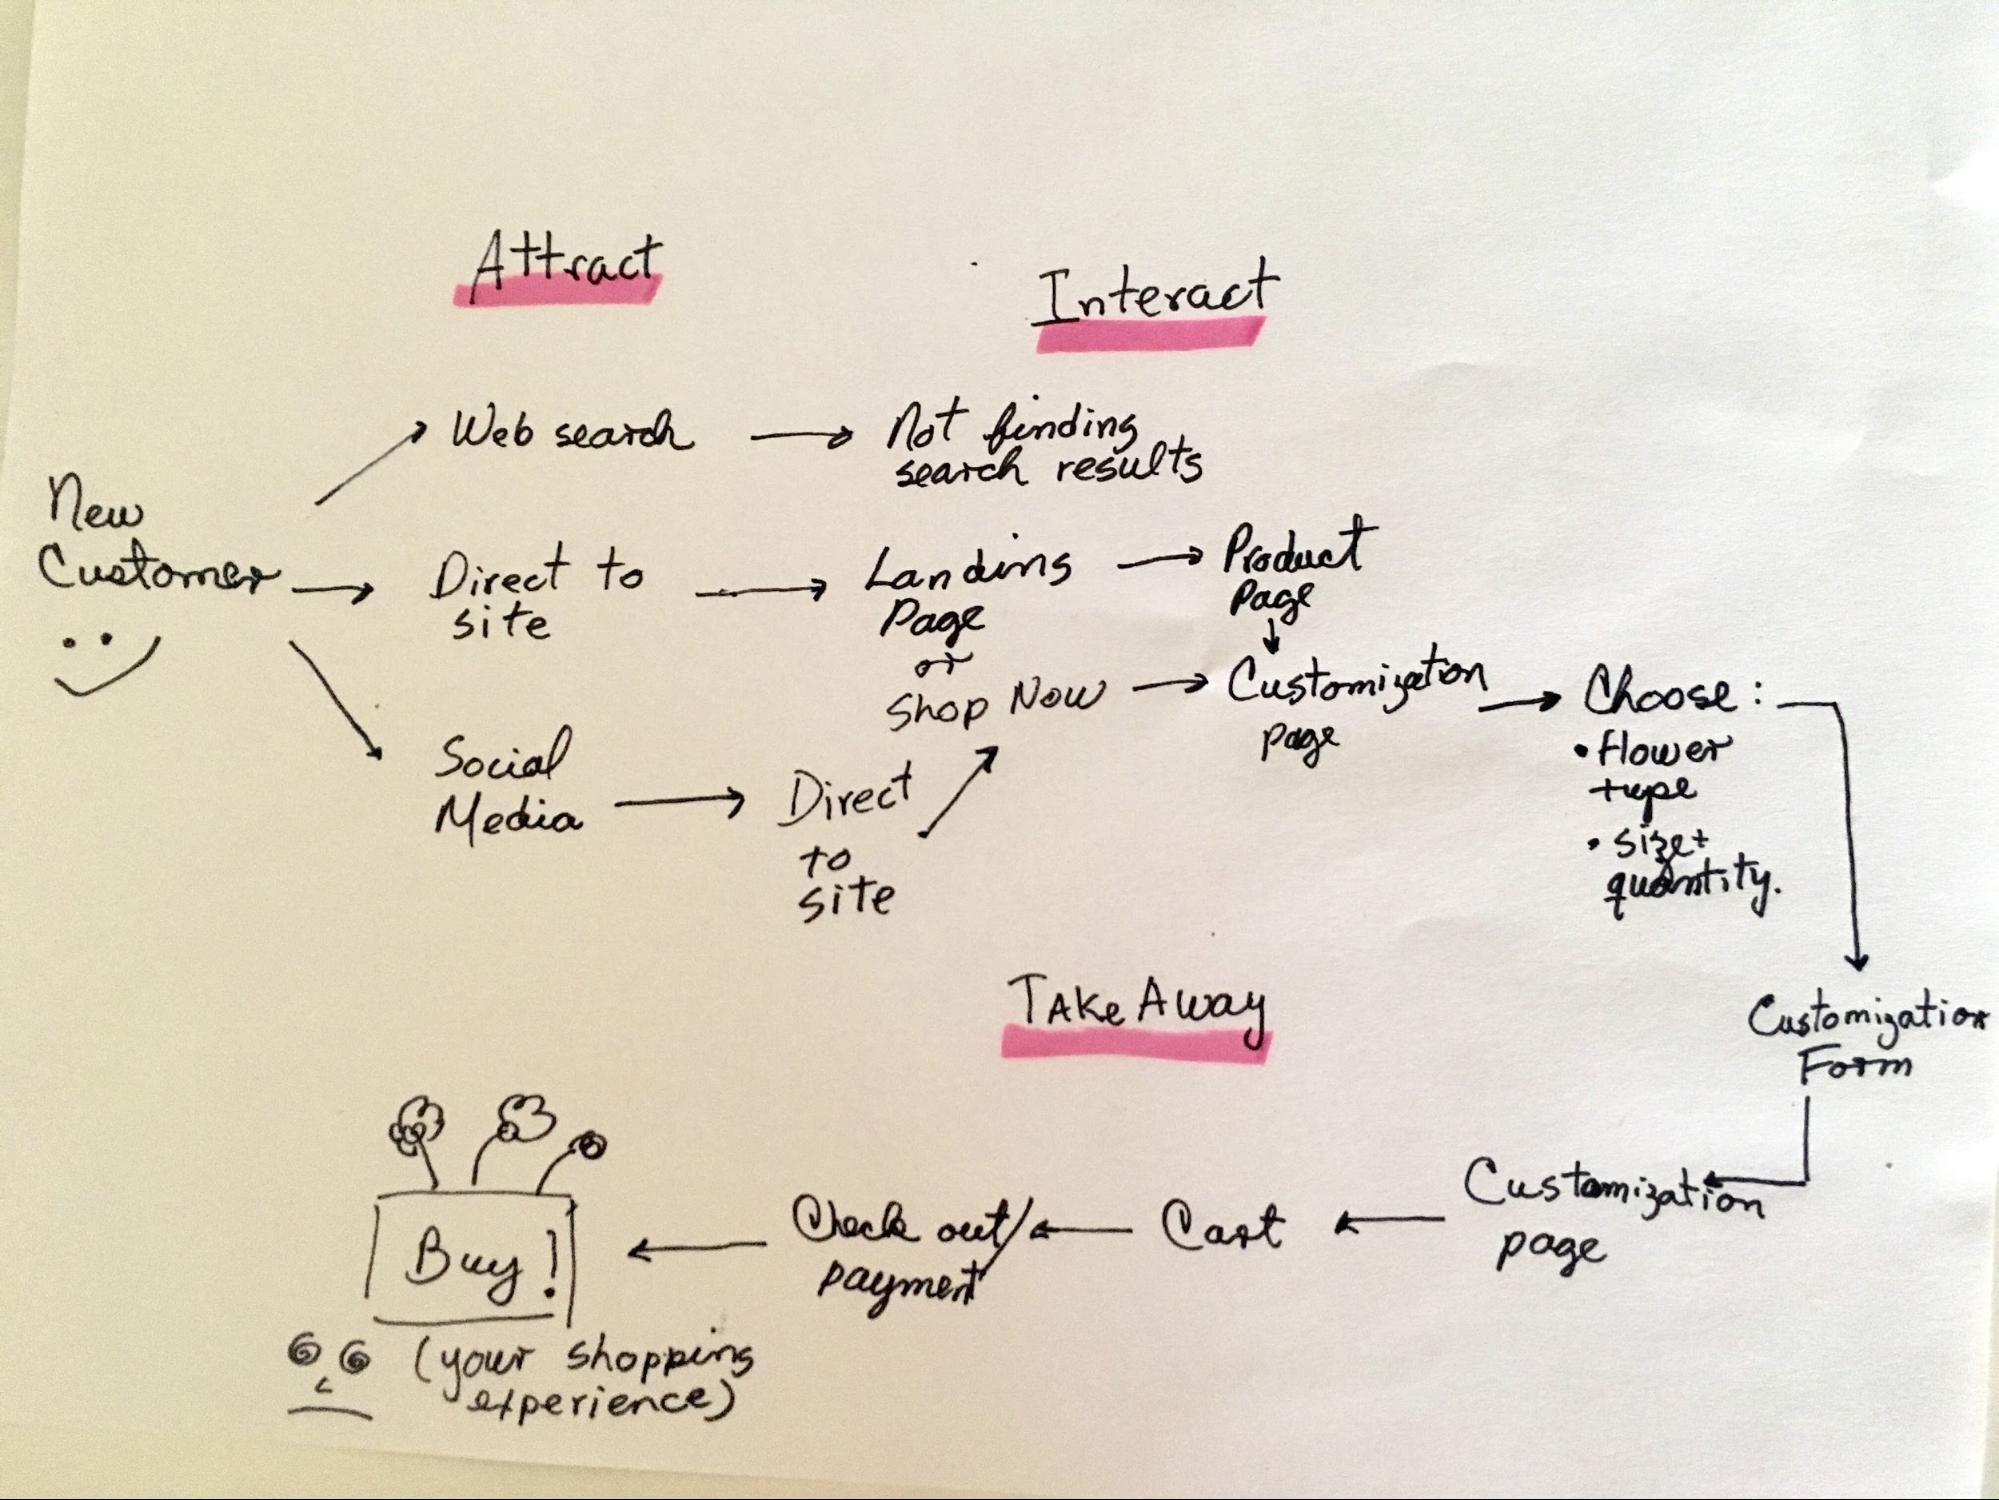 Attract
Interact
New
Customer
Web search
Not finding
search results
Direct to
site
Landing
Page
or
Shop Now
Product
Page
Customization
page
Choose:
• flower
type
• size+
quantity.
Social
Media
Direct
to
site
Customization
Form
Take Away
Customization
page
Cart
Check out/
payment
Buy!
(your shopping
experience)